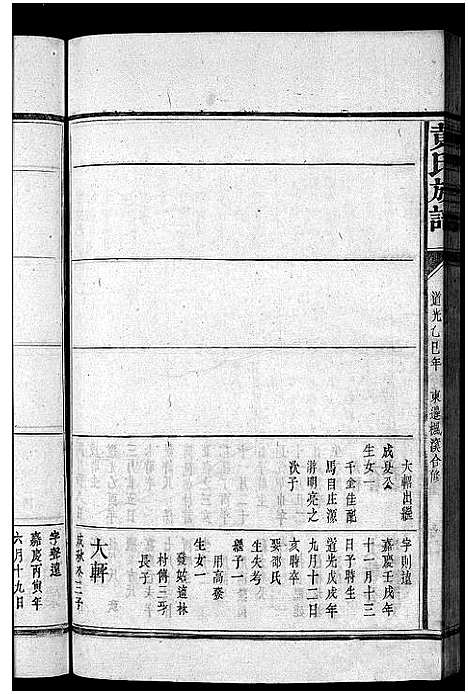 黄氏族譜
道光乙巳年
東邊楓溪合修
大韜出繼
成夏公
生女一
千金佳配
馬自庄潔
游明亮之
次子
字則遠
嘉慶壬戌年
十一月十三
日子時生
道光戊戌年
九月十二日
亥時卒
娶邵氏
生失考
繼子一
用高發
生女一
發姑適林
村傅三孚
長子
大軒
成秋公三子
字聲遠
嘉慶丙寅年
六月十九日